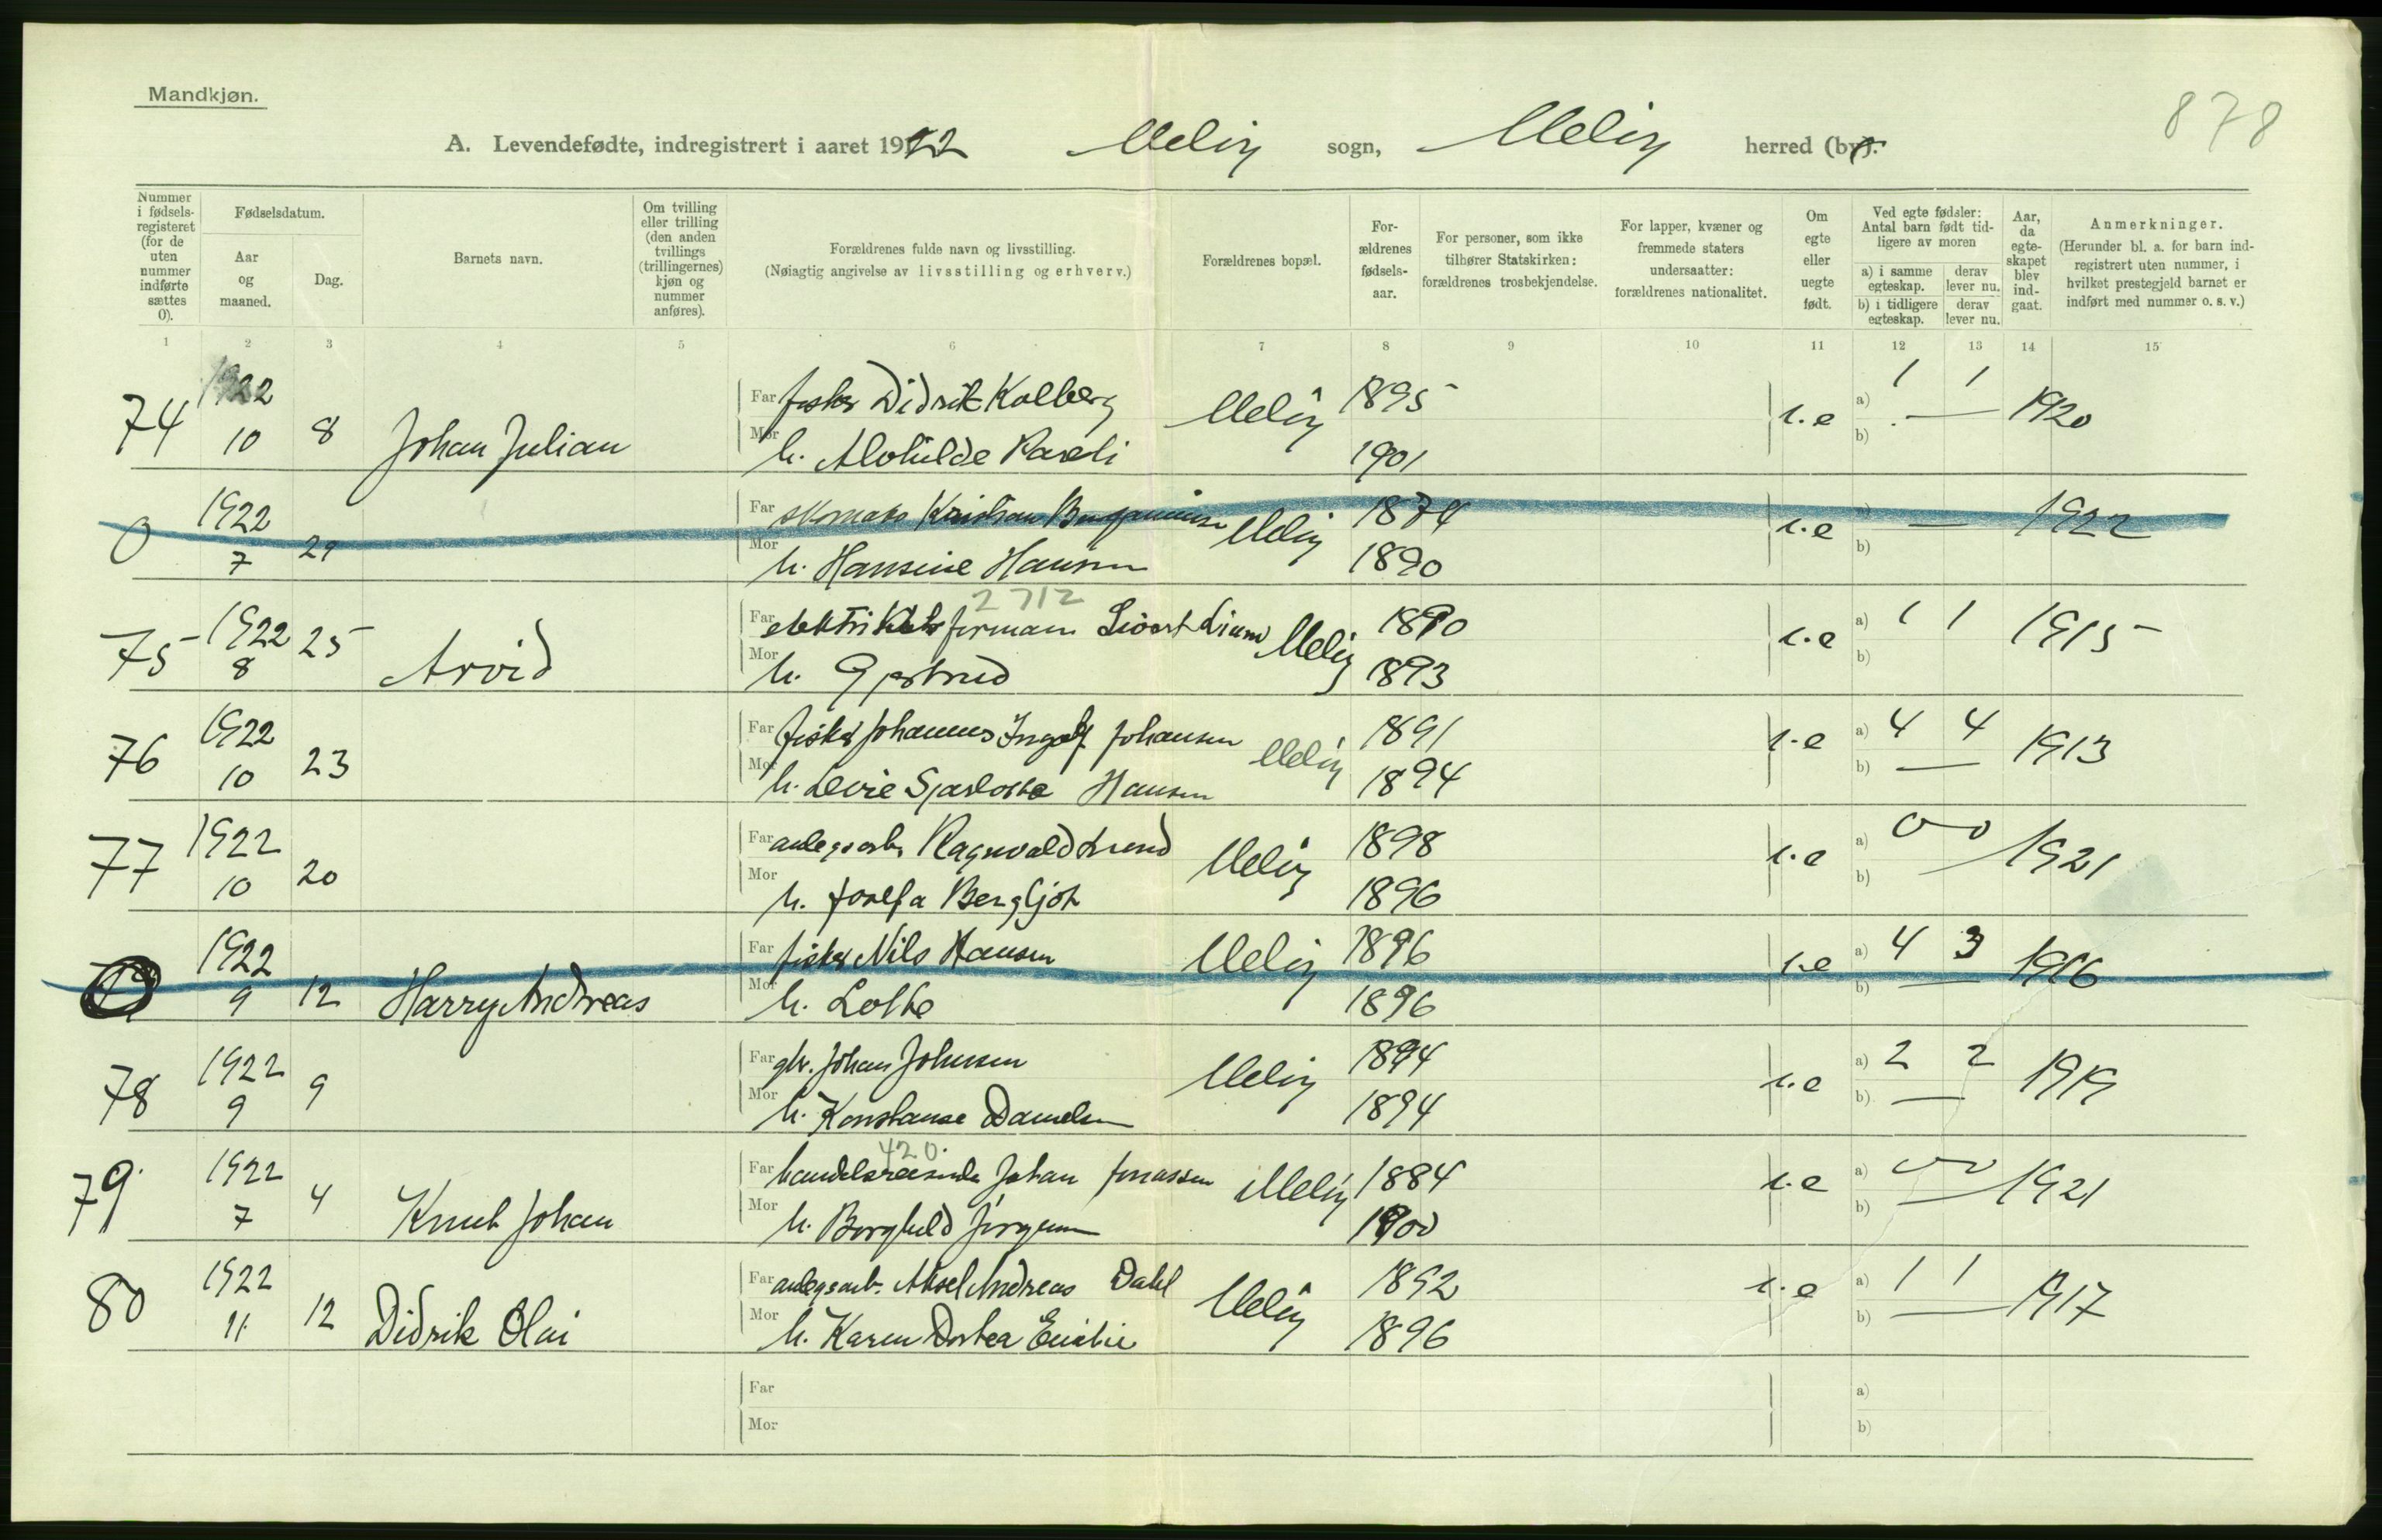 Mandkjøn.
878
A. Levendefødte, indregistrert i aaret 1922 Meløy sogn, Meløy herred (by).
Nummer i fødsels-registeret (for de uten nummer indførte sættes 0).
Fødselsdatum.
Aar og maaned.
Dag.
Barnets navn.
Om tvilling eller trilling (den anden tvillings (trillingernes) kjøn og nummer anføres).
Forældrenes fulde navn og livsstilling.
(Nøiagtig angivelse av livsstilling og erhverv.)
Forældrenes bopæl.
For-ældrenes fødsels-aar.
For personer, som ikke tilhører Statskirken: forældrenes trosbekjendelse.
For lapper, kvæner og fremmede staters undersaatter: forældrenes nationalitet.
Om egte eller uegte født.
Ved egte fødsler: Antal barn født tid-ligere av moren
a) i samme egteskap. derav lever nu.
b) i tidligere egteskap. derav lever nu.
Aar, da egte-skapet blev ind-gaat.
Anmerkninger.
(Herunder bl. a. for barn ind-registrert uten nummer, i hvilket prestegjeld barnet er indført med nummer o. s. v.)
1 2 3 4 5 6 7 8 9 10 11 12 13 14 15
74 1922 10 8 Johan Julian Far fisker Didrik Kolberg Meløy 1895 i.e a) 1 1 1920
Mor h. Alvhilde 1901 b) —
0 1922 7 29 Far skomaker Kristian Benjaminsen Meløy 1874 i.e — 1922
Mor h. Hansine Hansen 1890 b)
2712
75 1922 8 25 Arvid Far elektriker formann Sivert Meløy 1890 i.e a) 1 1 1915
Mor h. Gjertrud 1893 b)
76 1922 10 23 Far fisker Johannes Ingolf Johansen Meløy 1891 i.e a) 4 4 1913
Mor h. Levie Sjarlotte Hansen 1894 b) —
77 1922 10 20 Far anlegsarb. Ragnvald Meløy 1898 i.e a) 0 0 1921
Mor h. Josefa Bergljot 1896 b) —
1922 9 12 Harry Andreas Far fisker Nils Hansen Meløy 1896 i.e a) 4 3 1916
Mor h. Lotte 1896 b) —
78 1922 9 9 Far Johan Johnsen Meløy 1894 i.e a) 2 2 1919
Mor h. Konstanse Danielsen 1894 b) —
420.
79 1922 7 4 Knut Johan Far handelsreisende Johan Jonassen Meløy 1884 i.e a) 0 0 1921
Mor h. Borghild Jörgensen 1900 b) —
80 1922 11 12 Didrik Olai Far anlegsarb. Aksel Andreas Dahl Meløy 1892 i.e a) 1 1 1917
Mor h. Karen Dortea Emilie 1896 b) —
Far a)
Mor b)